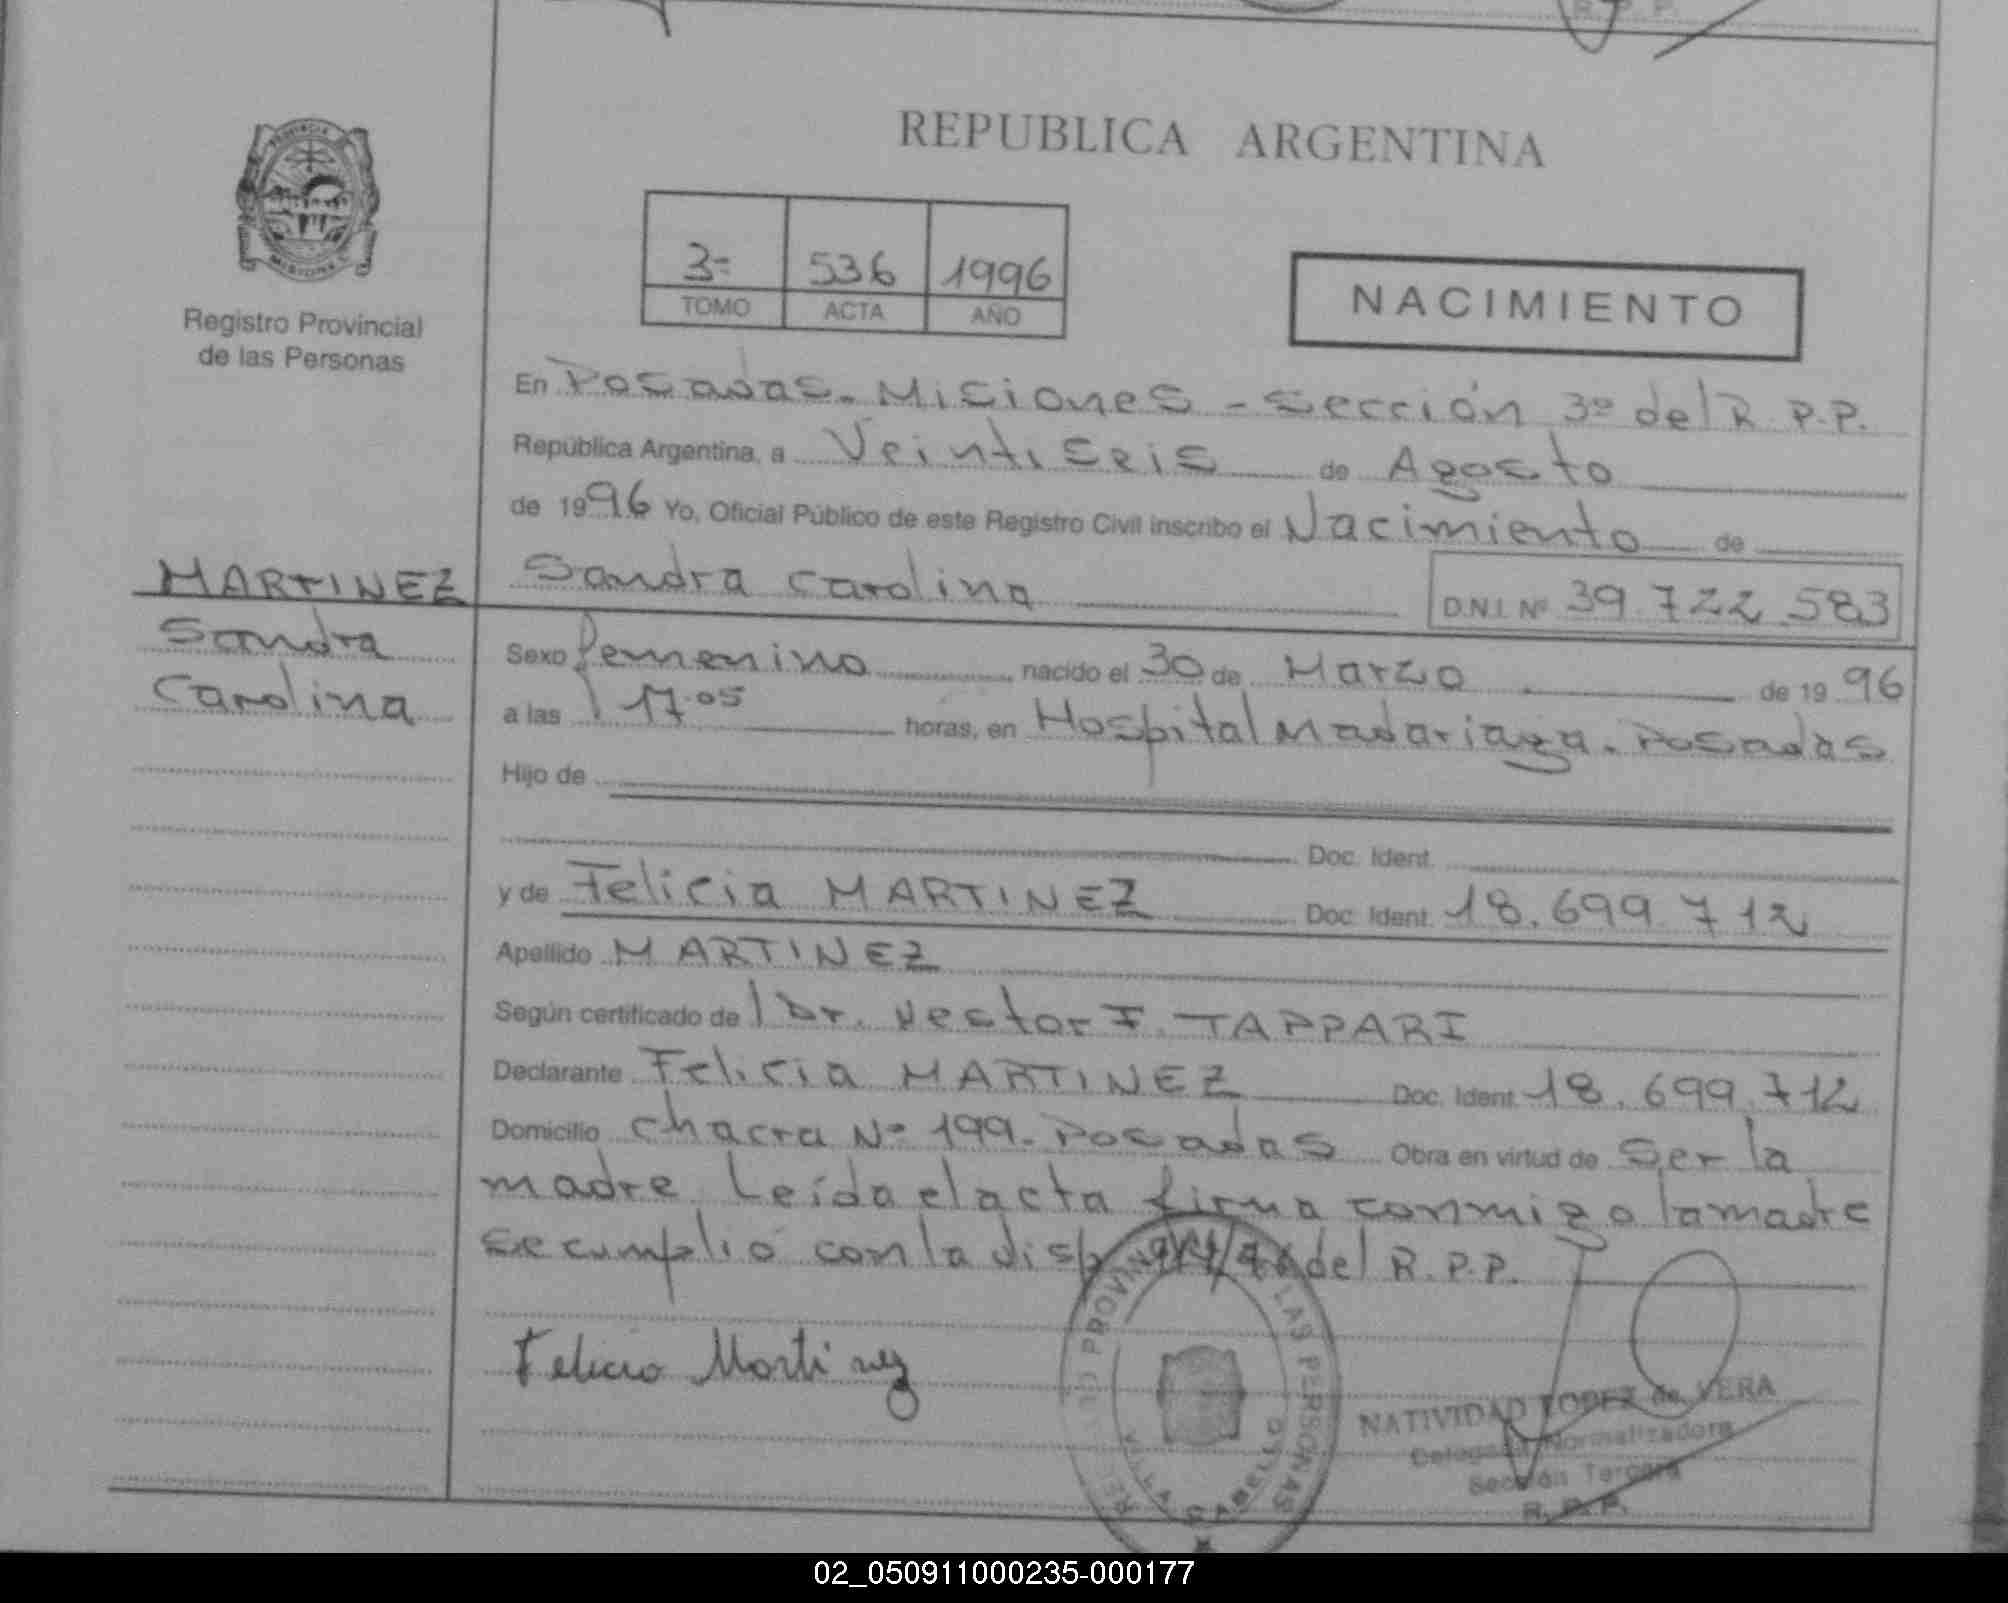 R. P. P.
PROVINCIA
MISIONES
Registro Provincial
de las Personas
REPUBLICA ARGENTINA
3º 536 1996
TOMO ACTA AÑO
NACIMIENTO
En Posadas. Misiones - Sección 3º del R. P.P.
República Argentina, a Veintiseis de Agosto
de 1996 Yo, Oficial Público de este Registro Civil inscribo el Nacimiento de
MARTINEZ
Sandra
Carolina
Sandra Carolina D.N.I. Nº 39.722.583
Sexo femenino nacido el 30 de Marzo de 1996
a las 17.05 horas, en Hospital Madariaga. Posadas
Hijo de
Doc. Ident.
y de Felicia MARTINEZ Doc. Ident. 18.699.712
Apellido MARTINEZ
Según certificado de Dr. Nestor F. TAPPARI
Declarante Felicia MARTINEZ Doc. Ident. 18.699.712
Domicilio Chacra Nº 199. Posadas Obra en virtud de Ser la
madre. Leida el acta firma conmigo la madre
se cumplió con la disp del R.P.P.
Felicia Martinez
PROVINCIAL LAS PERSONAS
VILLA CABELLO
NATIVIDAD LOPEZ de VERA
Delegada Normalizadora
Sección Tercera
R. P. P.
02_050911000235-000177